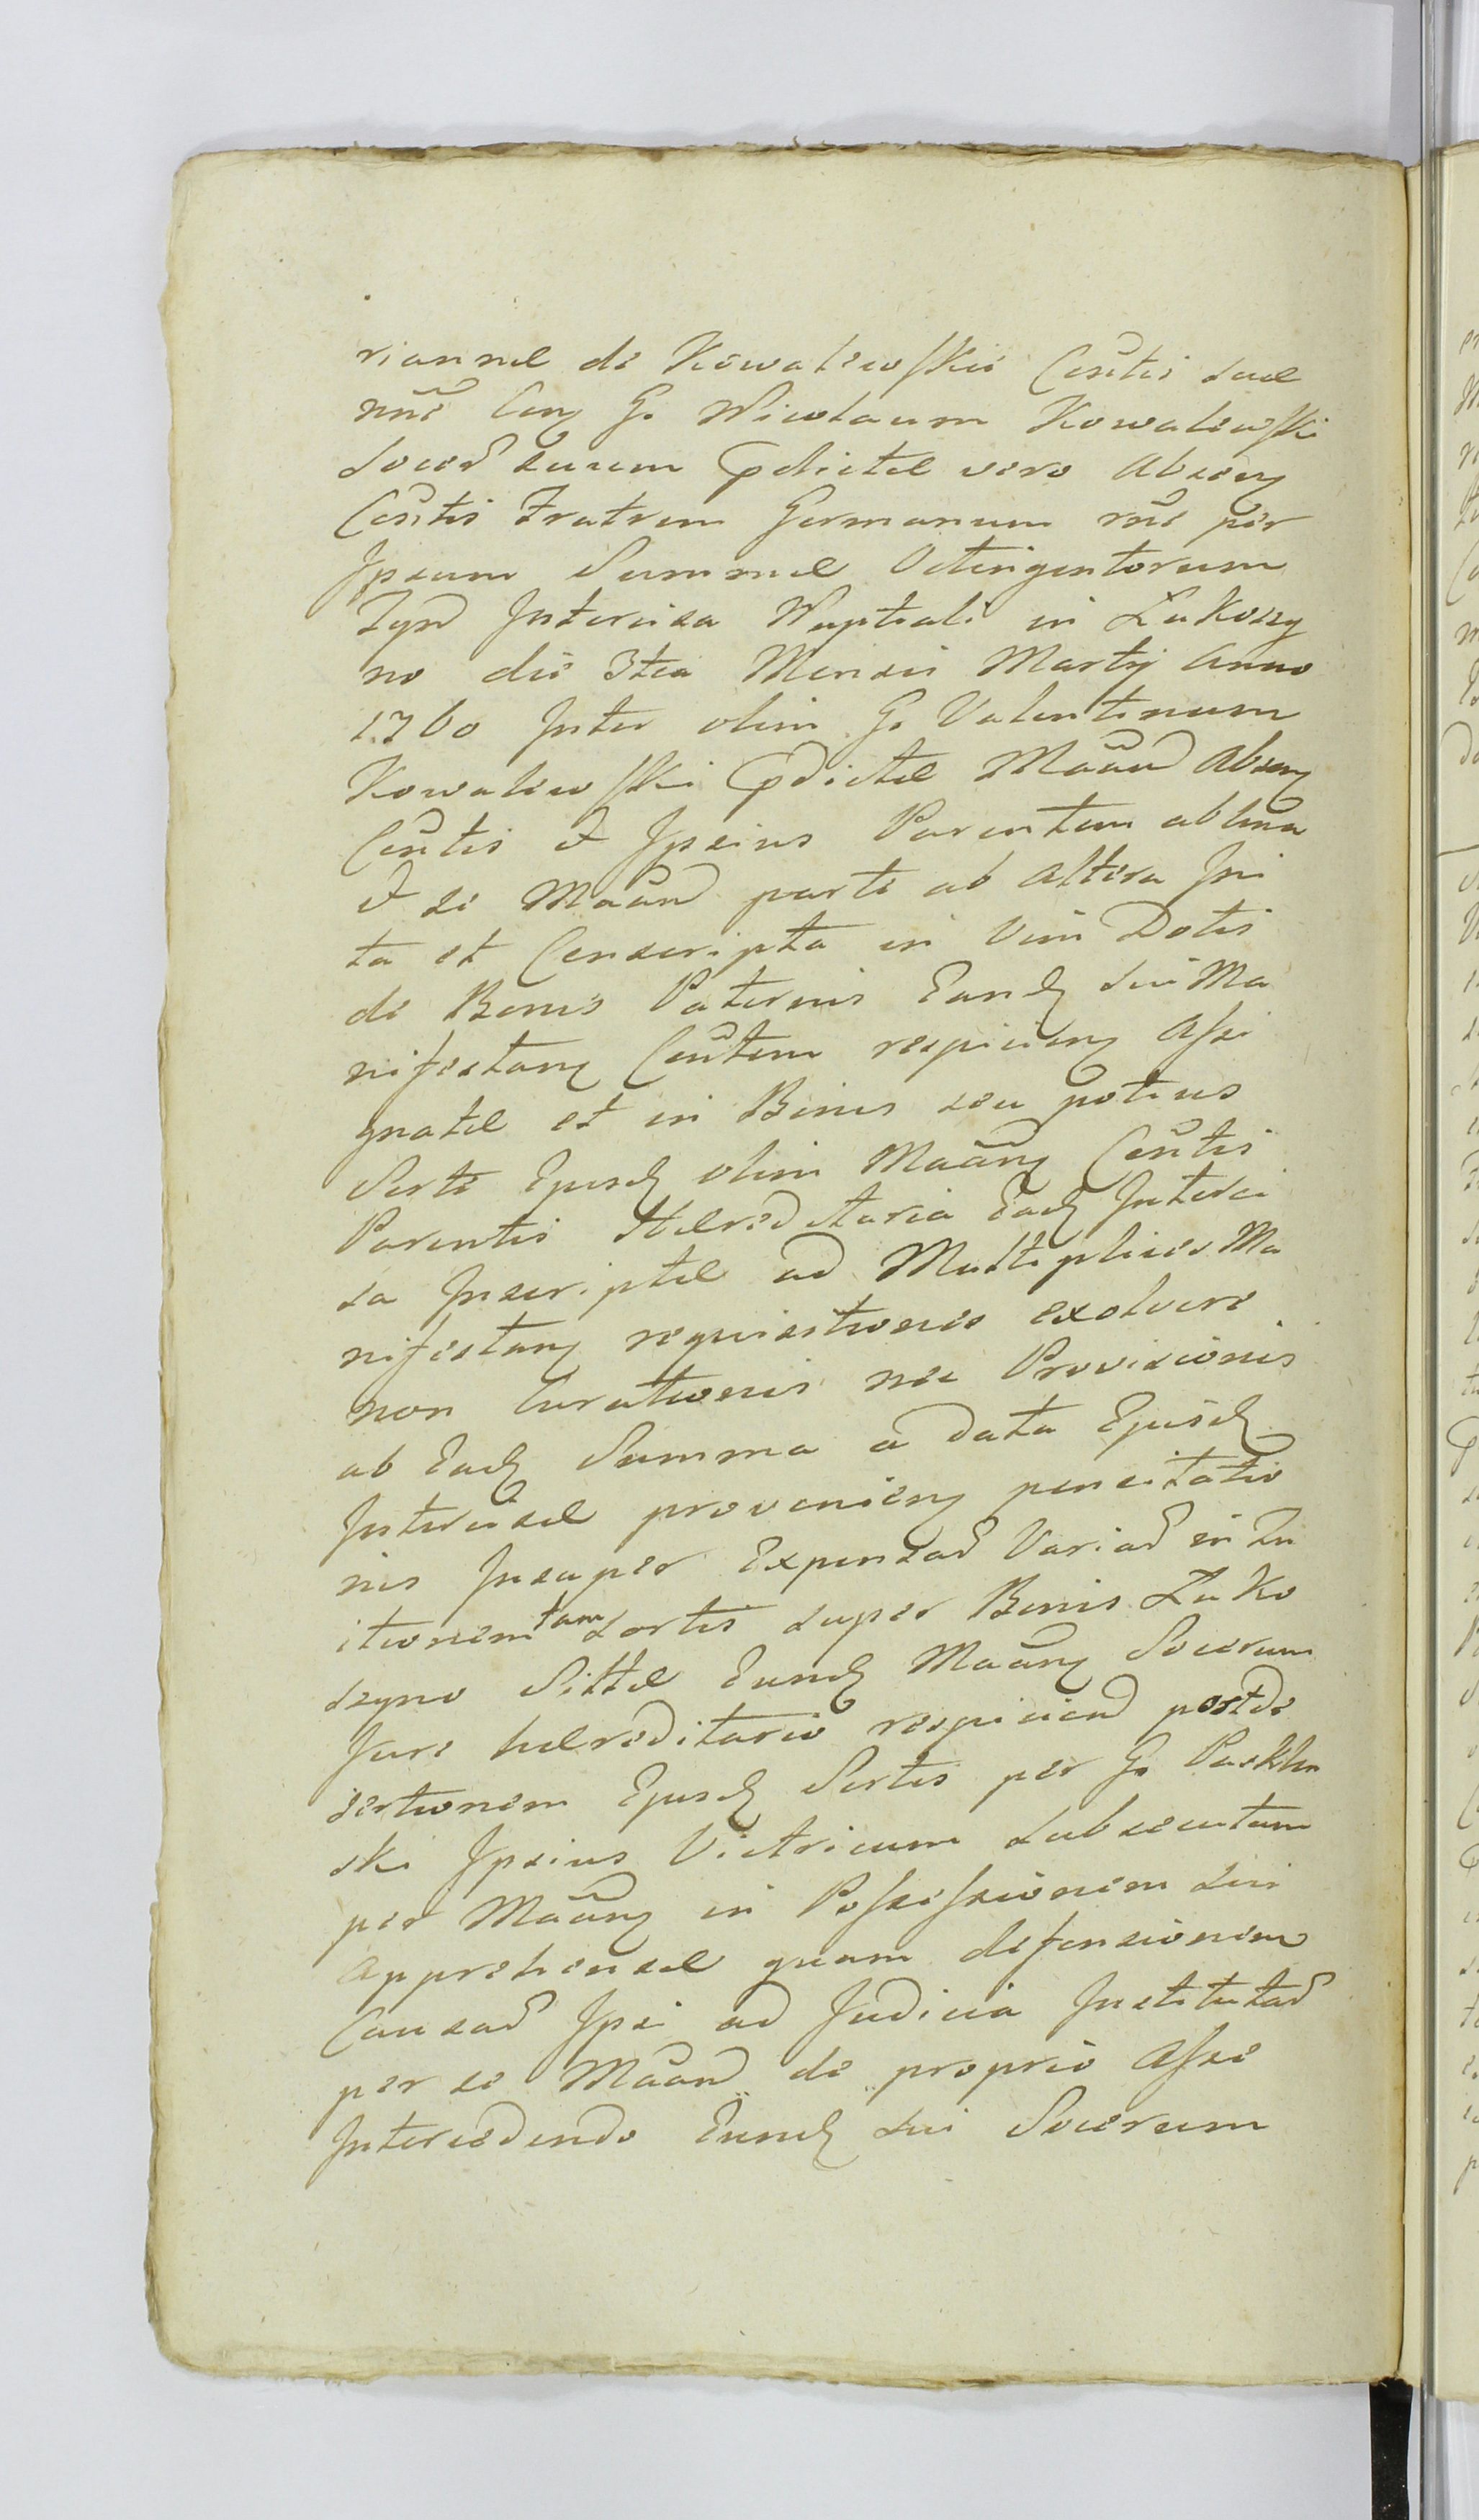 riannæ de Kowalewskie Csũtis suæ
nũe Con G. Nicolaum Kowalewski
Socer suum pdictæ vero Absen
Csũtis Fratrem Germanum rñe per
Ipsum Summæ Octingentorum
Tynf Intercisa Nuptiali in Lukoszy
no die 3tia Mensis Martij Anno
1760 Inter olim G. Valentinum
Kowalewski pdictæ Mãan Absen
Csũtis et Ipsius Parentem ab una
et se Mãan parte ab altera Ini
ta et Conscripta in Vim Dotis
de Bonis Paternis Eand sui Ma
nifestan Csũtem respicien Assi
gnatæ et in Bonis seu potius
Sorte Ejusd olim Mãan Csũtis
Parentis Hæreditaria Ead Interci
sa Inscriptæ ad Multiplices Ma
nifestan requisitiones exolvere
non Curationis nec Provisionis
ab Ead Summa a Data Ejusd
Intercisæ provenien pensitatio
nis Insuper Expensar Variar in Tu
itionem tam Sortis super Bonis Luko
szyno Sittæ Eund Mãan Socerum
Jure hæreditario respicien post de
sertionem Ejusd Sortis per G.
ski Ipsius Victricum subsecutam
per Mãan in Possessionem sui
Apprehensæ quam defensionem
Causar Ipsi ad Judicia Institutar
per se Mãan de proprio Asse
Intercedendo Eund sui Socerum